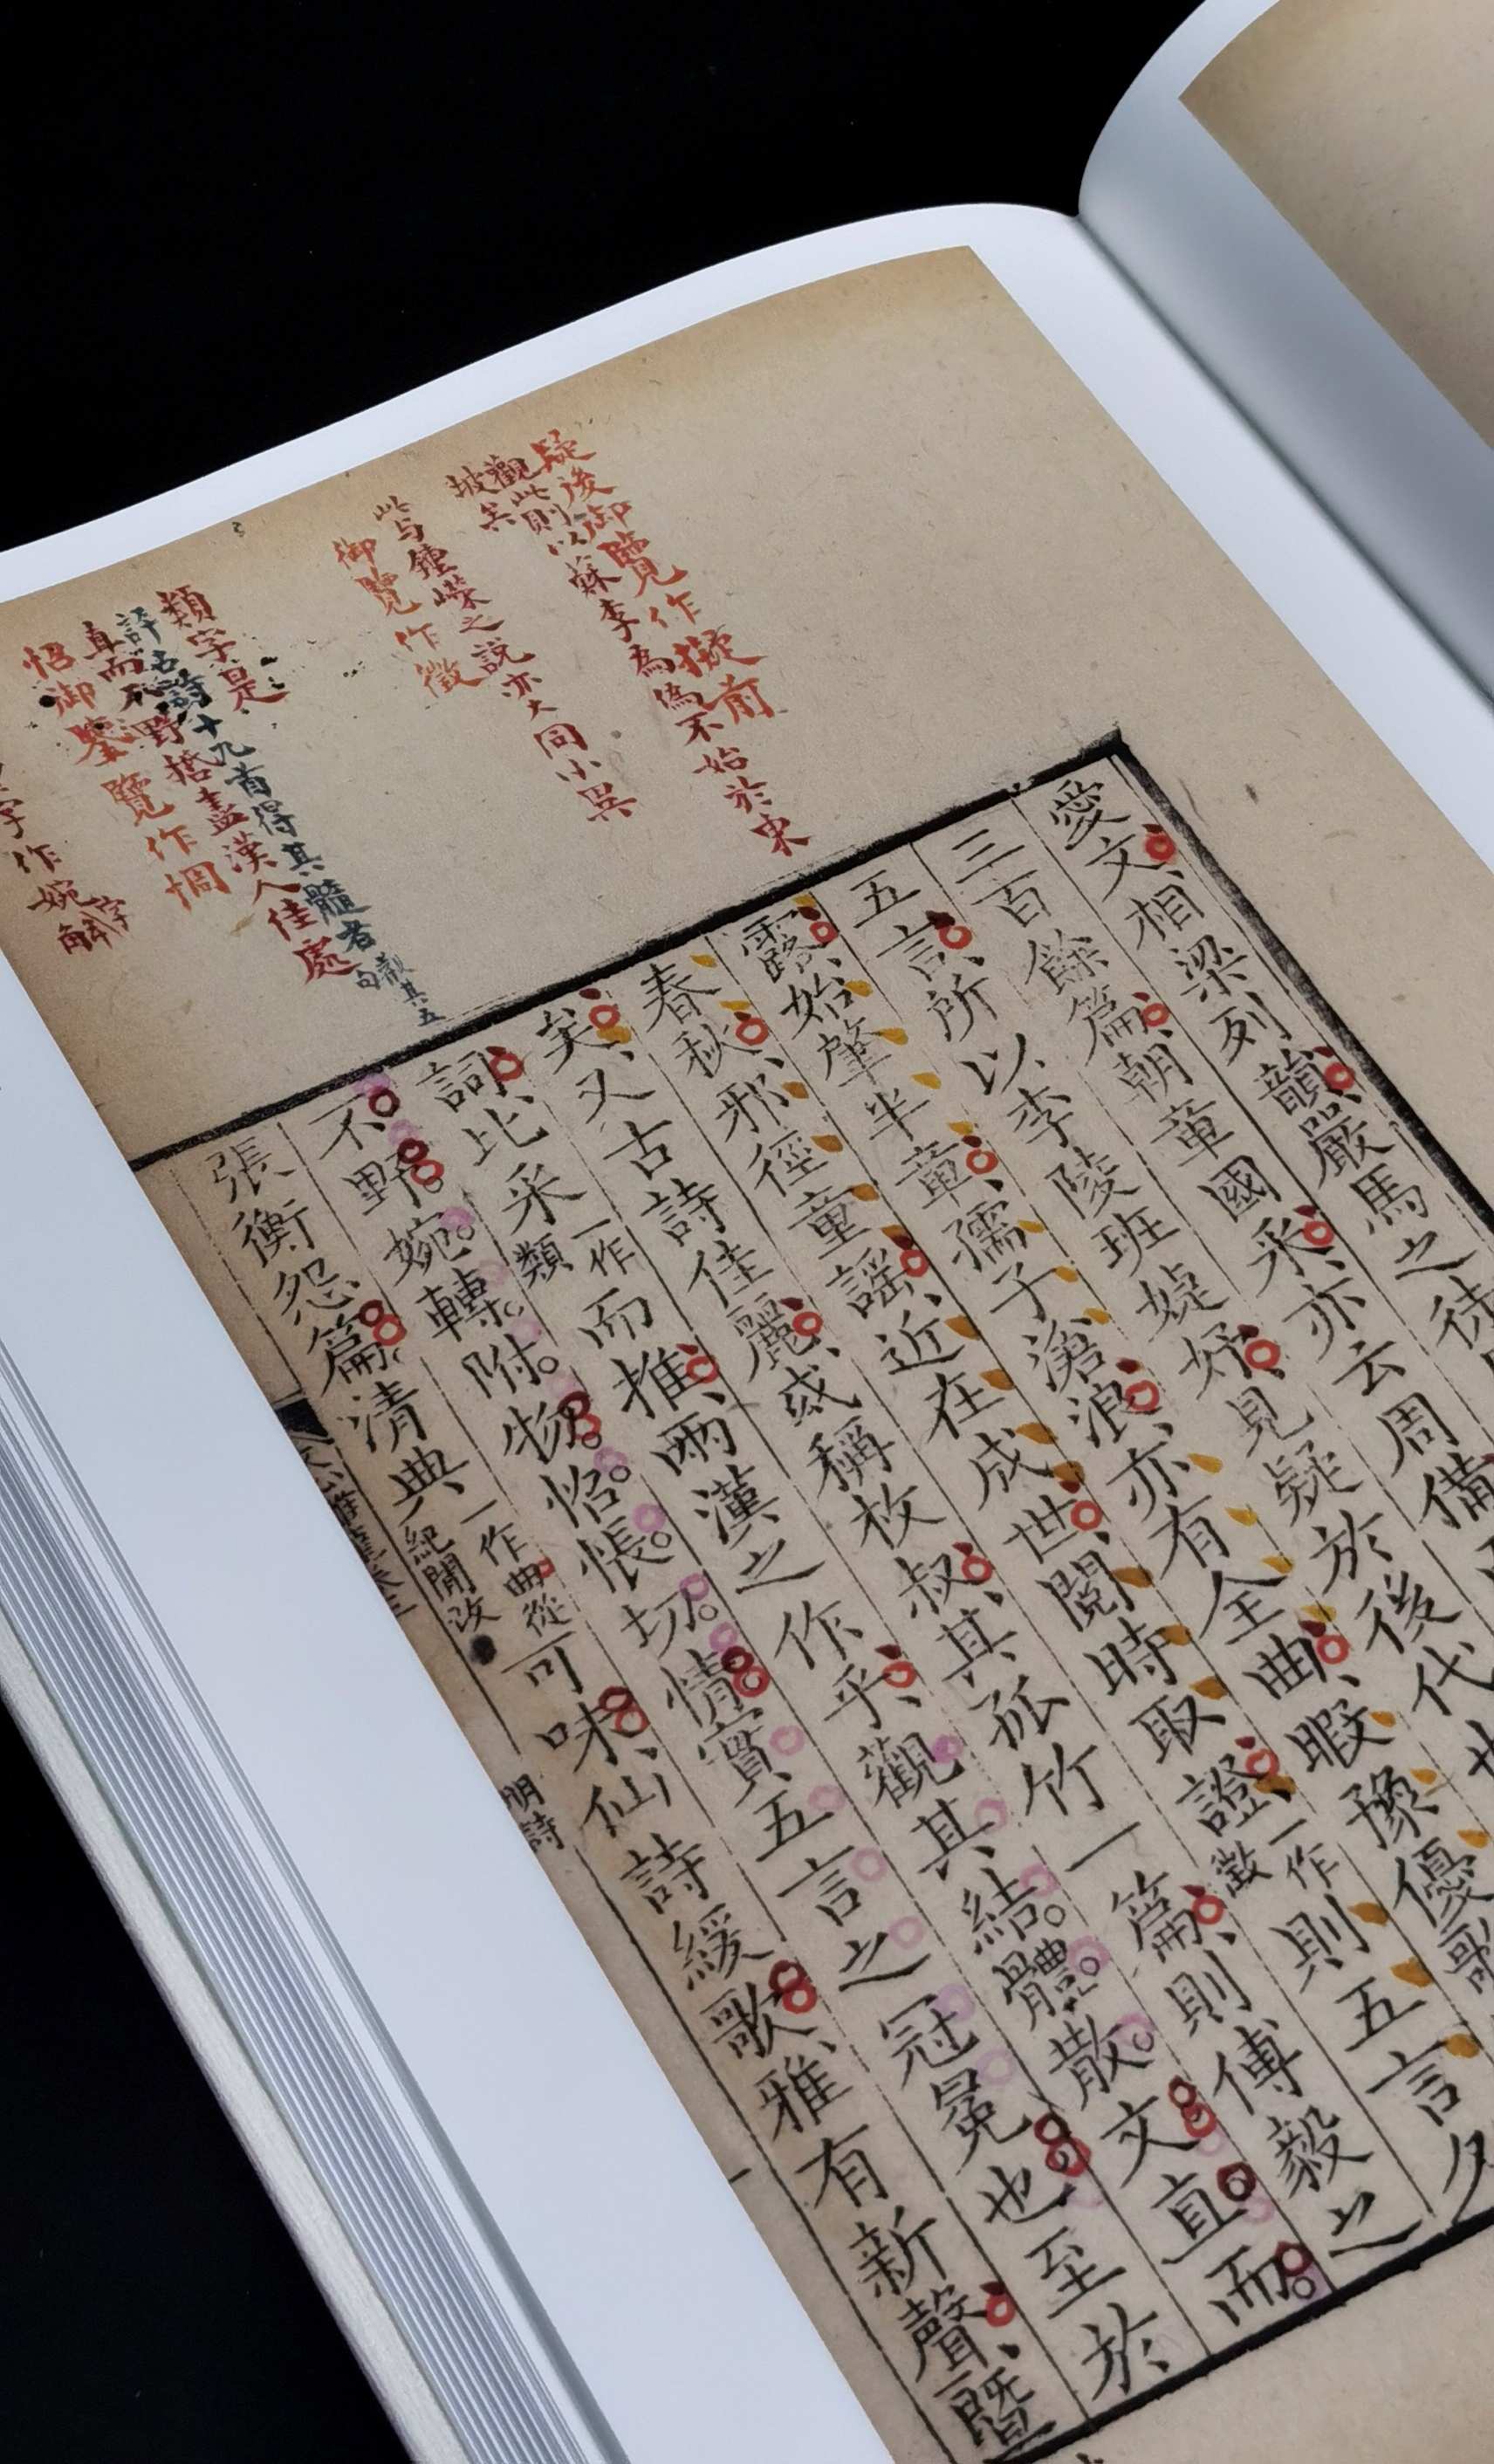 疑後御覽作擬前
觀此則以蘇李為偽不始於東
坡矣
此与鍾嶸之說亦大同小異
御覽作徵
類字是
評古詩十九首得其髓者
直而不野括盡漢人佳處
怊御鑒覽作惆
字作婉
愛文、相梁列韻、嚴馬之徒
三百餘篇、朝章國采、亦云周備
五言、所以李陵班婕妤、見疑於後代也
露、始肇半章、孺子滄浪、亦有全曲、暇豫優歌
春秋、邪徑童謠、近在成世、閱時取證、一作徵則五言久
矣、又古詩佳麗、或稱枚叔、其孤竹一篇、則傅毅之
詞、比采一作類而推、兩漢之作乎、觀其結。體。散。文直而。
不野。婉。轉。附。物。怊。悵。切。情實、五言之冠冕也至於
張衡怨篇。清典一作曲從紀聞改可味、仙詩緩歌、雅有新聲、暨
明詩